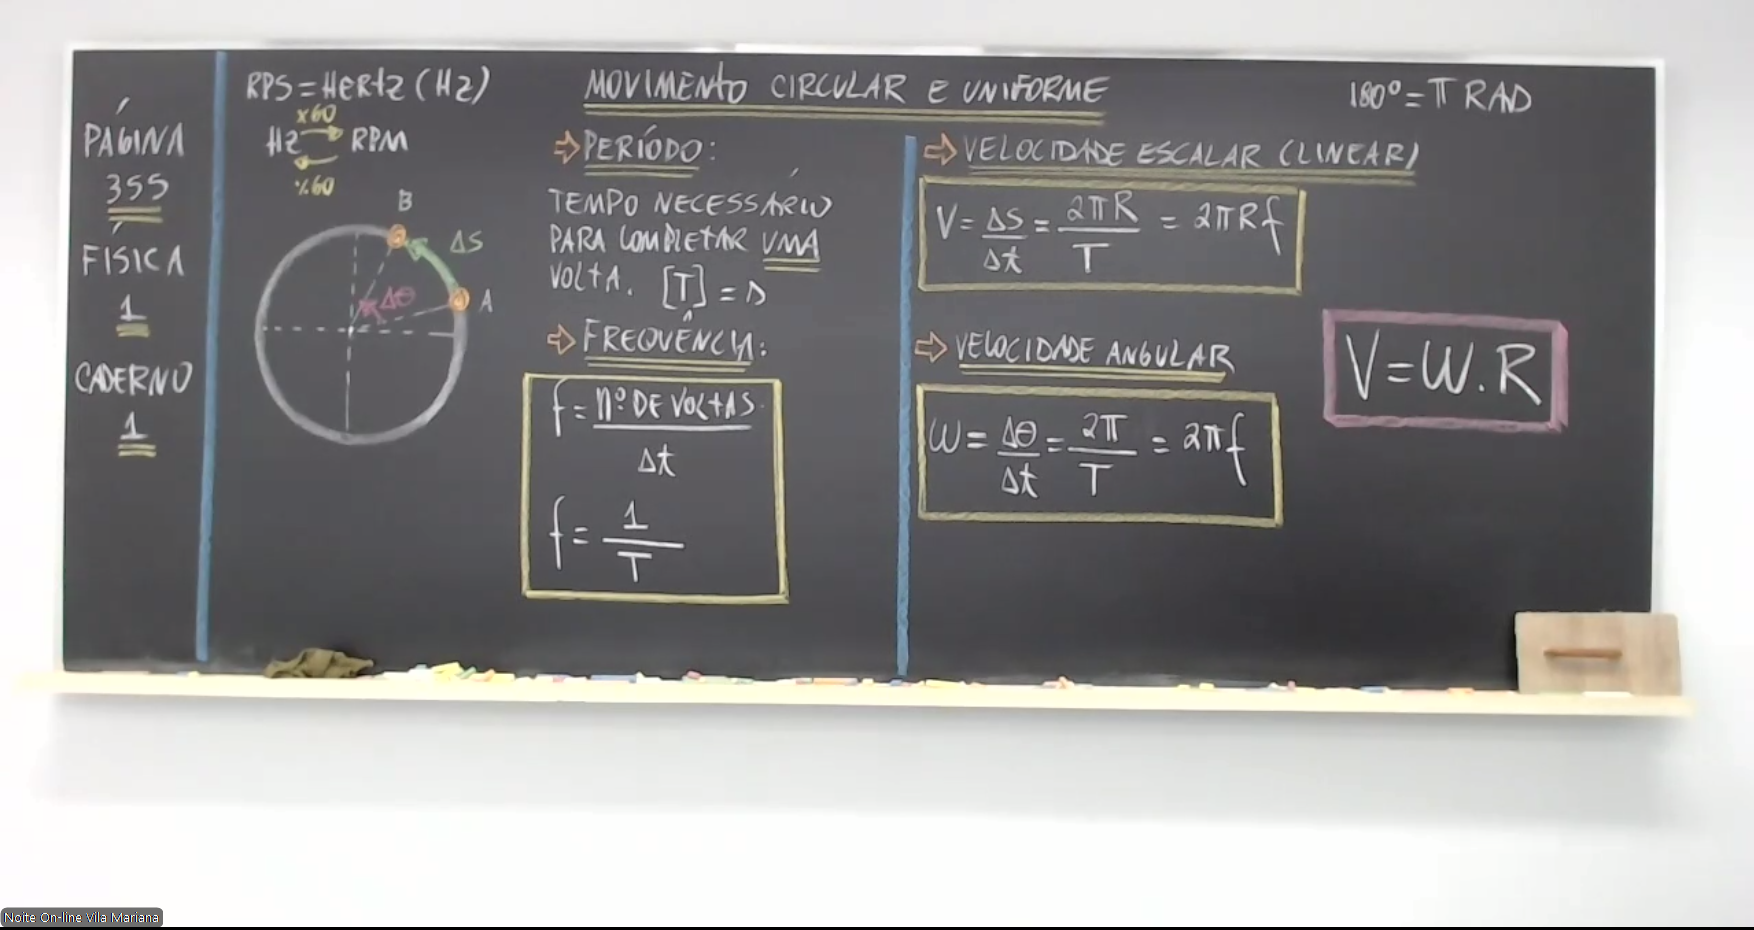 PÁGINA
355
FÍSICA
1
CADERNO
1
RPS = HERTZ (HZ)
x60
HZ RPM
%60
B
ΔS
Δθ
A
MOVIMENTO CIRCULAR E UNIFORME
⇨ PERÍODO:
TEMPO NECESSÁRIO
PARA COMPLETAR UMA
VOLTA. [T] = s
⇨ FREQUÊNCIA:
f = nº DE VOLTAS / Δt
f = 1 / T
180º = π RAD
⇨ VELOCIDADE ESCALAR (LINEAR)
V = ΔS / Δt = 2πR / T = 2πRf
⇨ VELOCIDADE ANGULAR
W = Δθ / Δt = 2π / T = 2πf
V = W . R
Noite On-line Vila Mariana